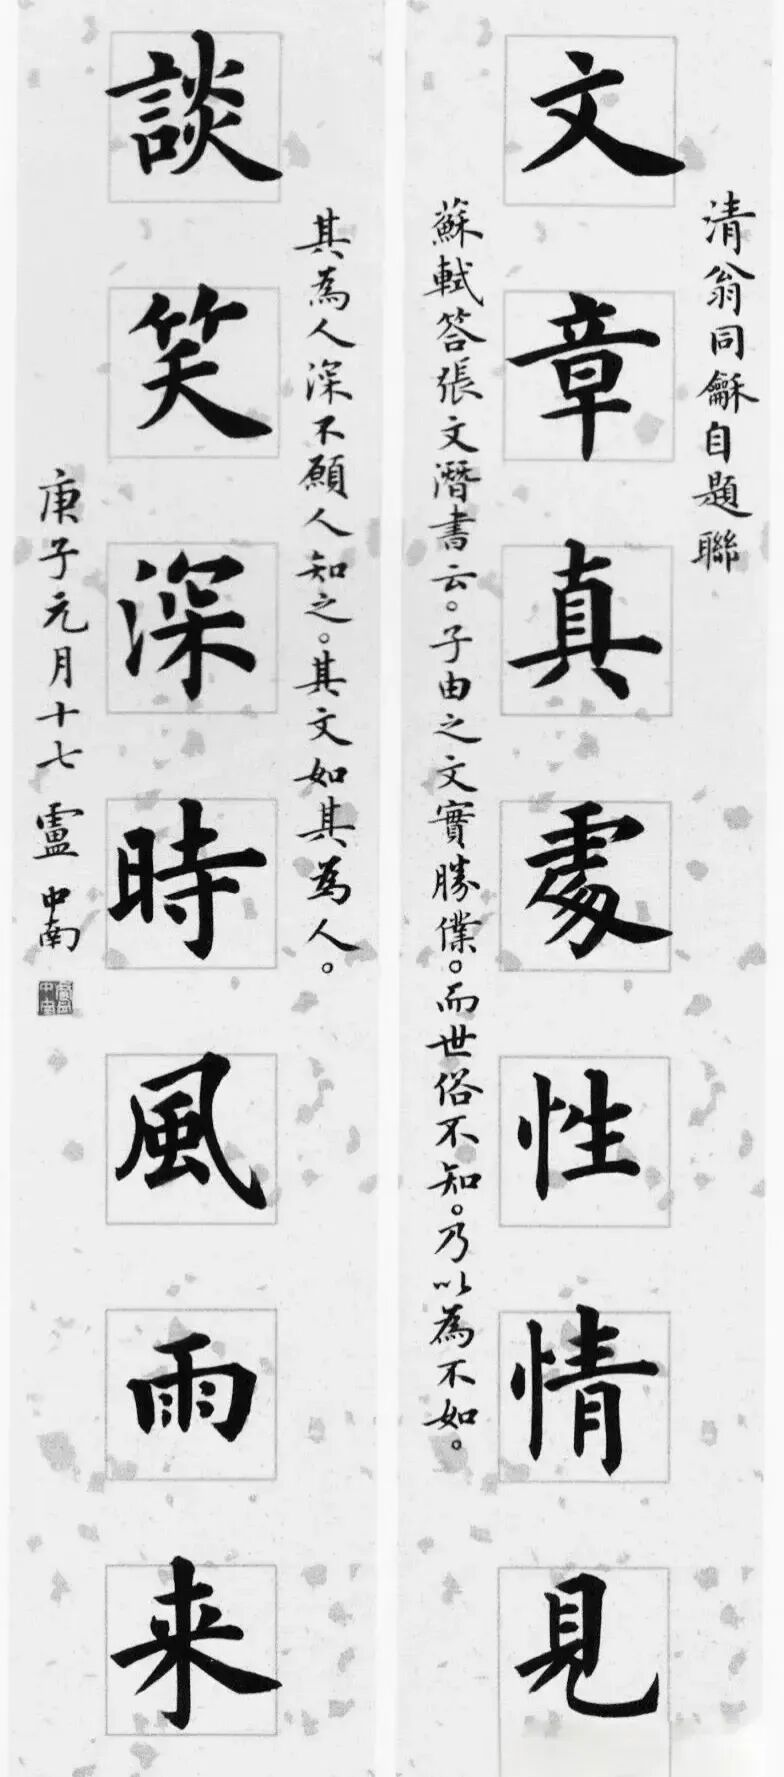 清翁同龢自題聯
文章真處性情見
蘇軾答張文潛書云。子由之文實勝僕。而世俗不知。乃以為不如。
其為人深不願人知之。其文如其為人。
談笑深時風雨来
庚子元月十七盧中南